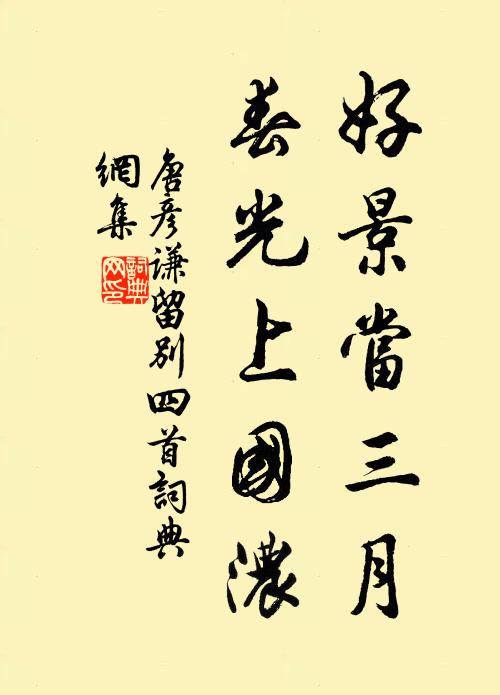 好景當三月
春光上國濃
唐彥謙留別四首詞典
網集
詞典網印